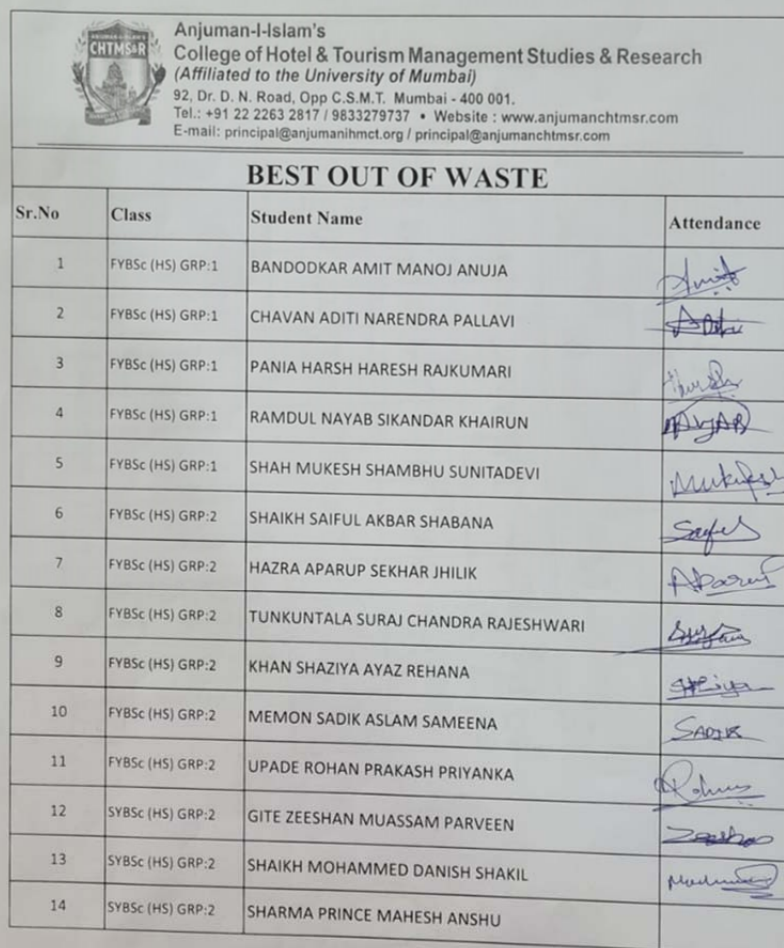 CHTMS&R
Anjuman-I-Islam's
College of Hotel & Tourism Management Studies & Research
(Affiliated to the University of Mumbai)
92, Dr. D. N. Road, Opp C.S.M.T. Mumbai - 400 001.
Tel.: +91 22 2263 2817 / 9833279737 • Website : www.anjumanchtmsr.com
E-mail: principal@anjumanihmct.org / principal@anjumanchtmsr.com
BEST OUT OF WASTE
Sr.No Class Student Name Attendance
1 FYBSc (HS) GRP:1 BANDODKAR AMIT MANOJ ANUJA Amit
2 FYBSc (HS) GRP:1 CHAVAN ADITI NARENDRA PALLAVI Aditi
3 FYBSc (HS) GRP:1 PANIA HARSH HARESH RAJKUMARI Harsh
4 FYBSc (HS) GRP:1 RAMDUL NAYAB SIKANDAR KHAIRUN NAYAB
5 FYBSc (HS) GRP:1 SHAH MUKESH SHAMBHU SUNITADEVI Mukesh
6 FYBSc (HS) GRP:2 SHAIKH SAIFUL AKBAR SHABANA
7 FYBSc (HS) GRP:2 HAZRA APARUP SEKHAR JHILIK
8 FYBSc (HS) GRP:2 TUNKUNTALA SURAJ CHANDRA RAJESHWARI
9 FYBSc (HS) GRP:2 KHAN SHAZIYA AYAZ REHANA
10 FYBSc (HS) GRP:2 MEMON SADIK ASLAM SAMEENA SADIK
11 FYBSc (HS) GRP:2 UPADE ROHAN PRAKASH PRIYANKA
12 SYBSc (HS) GRP:2 GITE ZEESHAN MUASSAM PARVEEN
13 SYBSc (HS) GRP:2 SHAIKH MOHAMMED DANISH SHAKIL
14 SYBSc (HS) GRP:2 SHARMA PRINCE MAHESH ANSHU